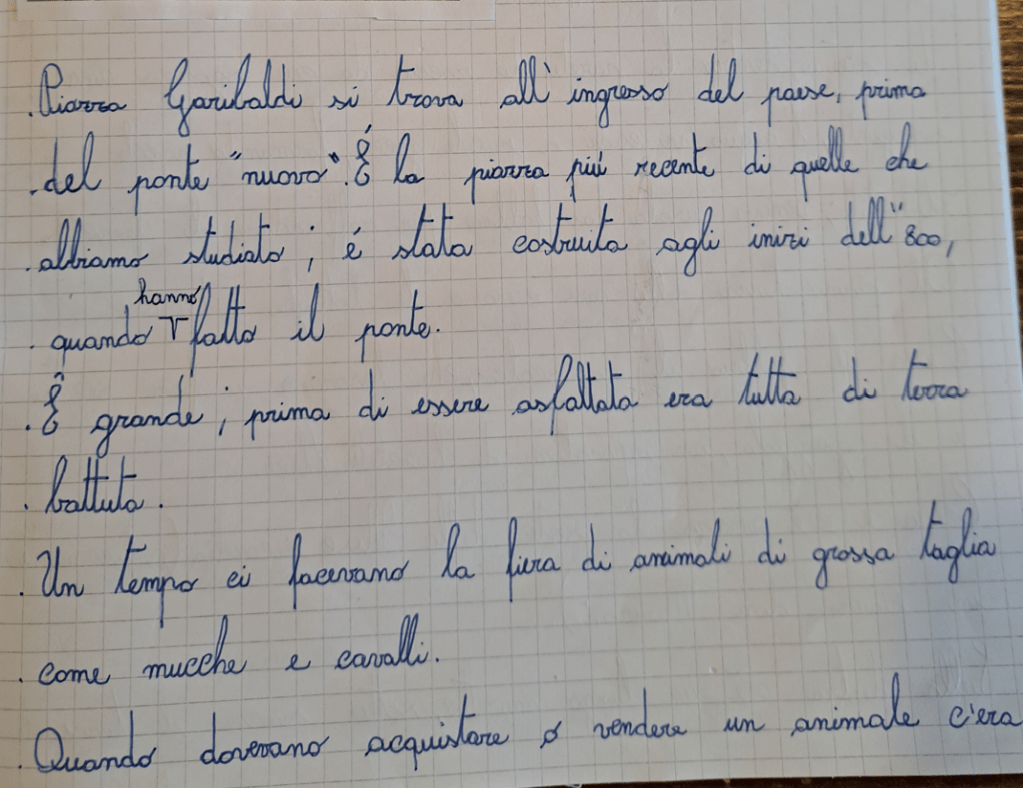 .Piazza Garibaldi si trova all'ingresso del paese, prima
.del ponte "nuovo". É la piazza piú recente di quelle che
.abbiamo studiato; é stata costruita agli inizi dell'"800,
hanno
. quando fatto il ponte.
. Ê grande; prima di essere asfaltata era tutta di terra
. battuta.
. Un tempo ci facevano la fiera di animali di grossa taglia
. come mucche e cavalli.
. Quando dovevano acquistare o vendere un animale c'era